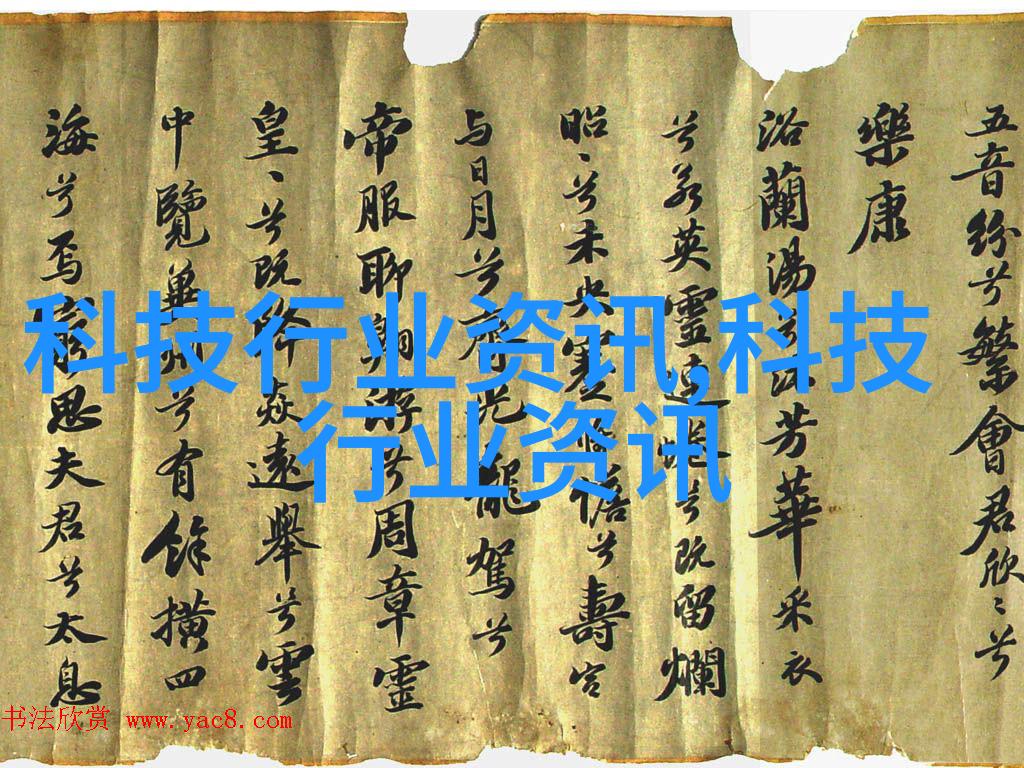 五音紛兮繁會君欣〻兮
樂康
浴蘭湯兮沐芳華采衣
兮若英靈連蜷兮既留爛
昭〻兮未央蹇將憺兮壽宮
与日月兮齊光龍駕兮
帝服聊翱游兮周章靈
皇〻兮既降焱遠舉兮雲
中覽兾州兮有餘橫四
海兮焉窮思夫君兮太息
科技行业资讯,科技
行业资讯
书法欣赏 www.yac8.com